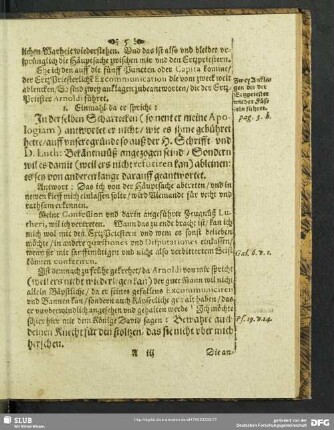 5
lichen Warheit wiederstehen. Vnd das ist also vnd bleibet ve-
sprünglich die Hauptsache zwischen mir vnd den Ertzpriestern.
Ehe ich den auff die fünff Puncten oder Capita komme/
der Ertzpriesterliche Excommunication die vom zweck weit
ablencken/ sind zwey anklagen zu beantworten/ die der Ertz-
Priester Arnoldi führet.
1. Einmahl da er spricht:
In derselben Scharteken (so nent er meine Apo-
logiam) antwortet er nicht/ wie es ihme gebühret
hette/ auff unsere gründe so auß der H. Schrifft vnd
D. Luth: Bekäntnüß angezogen seind/ Sondern
wil es damit (weil ers nicht refutiren kan) ablenen:
es sey von anderen lange darauff geantwortet.
Antwort: Das ich von der Häuptsache abtreten/ vnd in
newen krieg mich einlassen solte/ wird Niemande für recht vnd
rathsam erkennen.
Meine Confession vnd darin angeführte Zeugnüß Lu-
theri, wil ich vertreten. Wann das zu ende bracht ist/ kan ich
mich wol mit den Ertzpriestern vnd wem es sonst belieben
möchte/ in andere quæstiones vnd Disputationes einlassen/
wenn sie mit sanfftmütigen vnd nicht also verbitterten Be-
conferiren.
Ist demnach
da Arnoldi von mir spricht
(weil ers nicht wiederligen kan) der guter Mann wil nicht
allein Bäpstliche/ da er seines gefallens Excommuniciren
vnd Bannen kan/ sondern auch Käyserliche gewalt haben/ das
er vnuberwindlich angesehen vnd gehalten werde? Ich möchte
schier hier mit dem Könige David sagen: Bewahre auch
deinen Knecht für den stoltzen, das sie nicht vber mich
herschen.
A iij
Die an-
Zwey Ankla-
gen die der
Ertzpriester
wieder Küst-
führet.
pag. 3. b.
Gal. 6. v. 1.
Ps. 19. v. 14.
SLUB
Wir führen Wissen.
gefördert von der
Deutschen Forschungsgemeinschaft
DFG